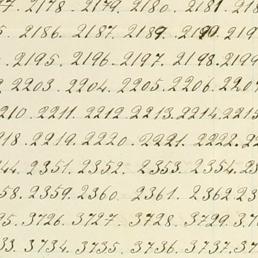 2178. 2179. 2180. 2181. 218
2186. 2187. 2189. 2190. 219
2195. 2196. 2197. 2198. 2199
2203. 2204. 2205. 2206. 2207
210. 2211. 2212. 2213. 2214. 2215
18. 2219. 2220. 2221. 2222. 22
44. 2351. 2352. 2353. 2354. 23
58. 2359. 2360. 2361. 2362. 236
25. 3726. 3727. 3728. 3729. 37
33. 3734. 3735. 3736. 3737. 37